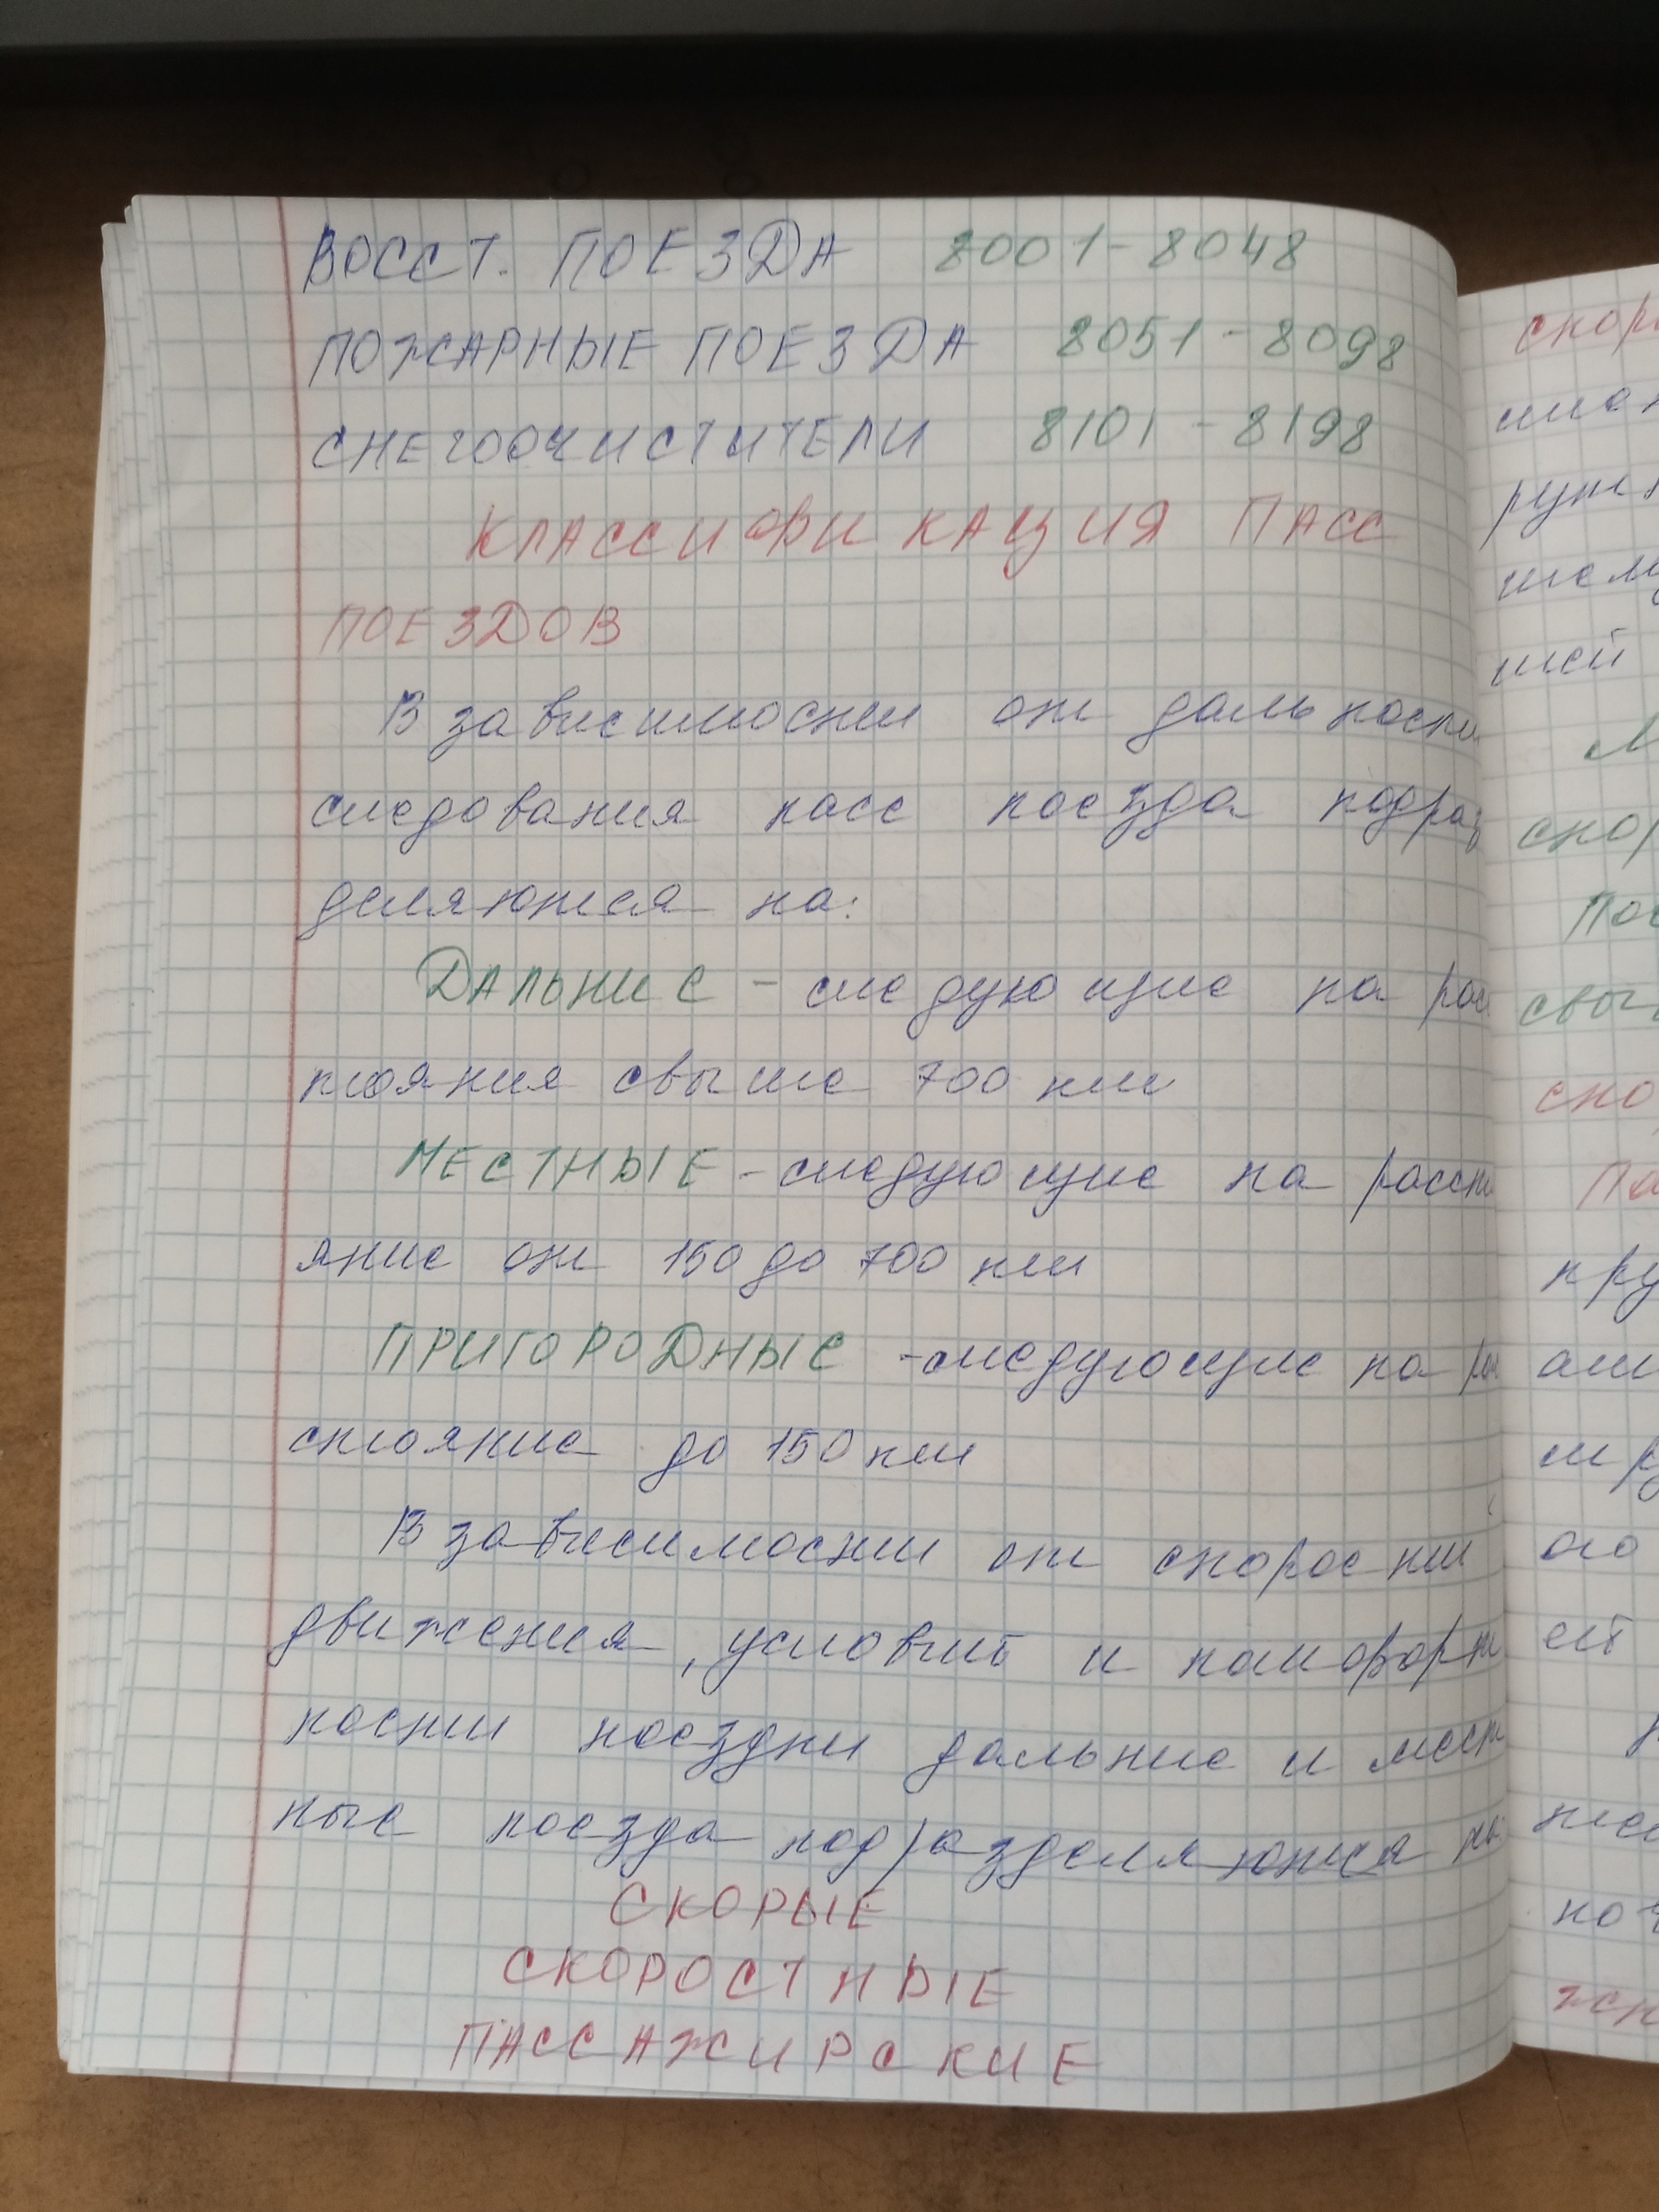 ВОССТ. ПОЕЗДА 8001-8048
ПОЖАРНЫЕ ПОЕЗДА 8051-8098
СНЕГООЧИСТИТЕЛИ 8101-8198
КЛАССИФИКАЦИЯ ПАСС
ПОЕЗДОВ
В зависимости от дальности
следования пасс поезда подраз
деляются на:
ДАЛЬНИЕ - следующие на рас
тояния свыше 700 км
МЕСТНЫЕ - следующие на расст
яние от 150 до 700 км
ПРИГОРОДНЫЕ - следующие на рас
стояние до 150 км
В зависимости от скорости
движения, условий и комфорт
ности поездки дальние и мест
ные поезда подразделяются на
СКОРЫЕ
СКОРОСТНЫЕ
ПАССАЖИРСКИЕ